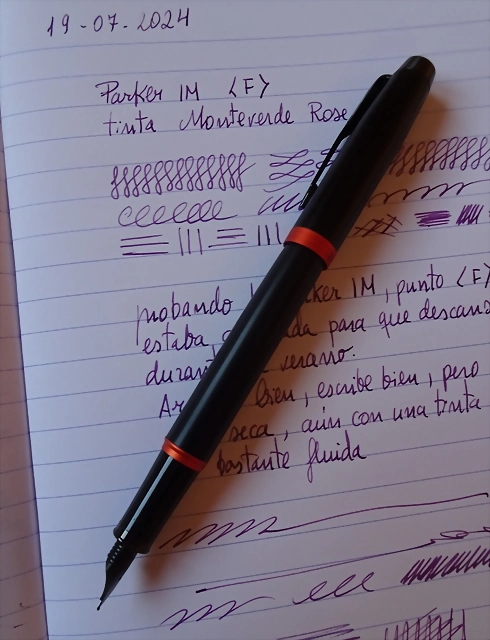 19-07-2024
Parker IM <F>
tinta Monteverde Rose
probando ker IM, punto <F>
estaba, da para que descans
duran verano.
bien, escribe bien, pero
seca, aún con una tinta
bastante fluida